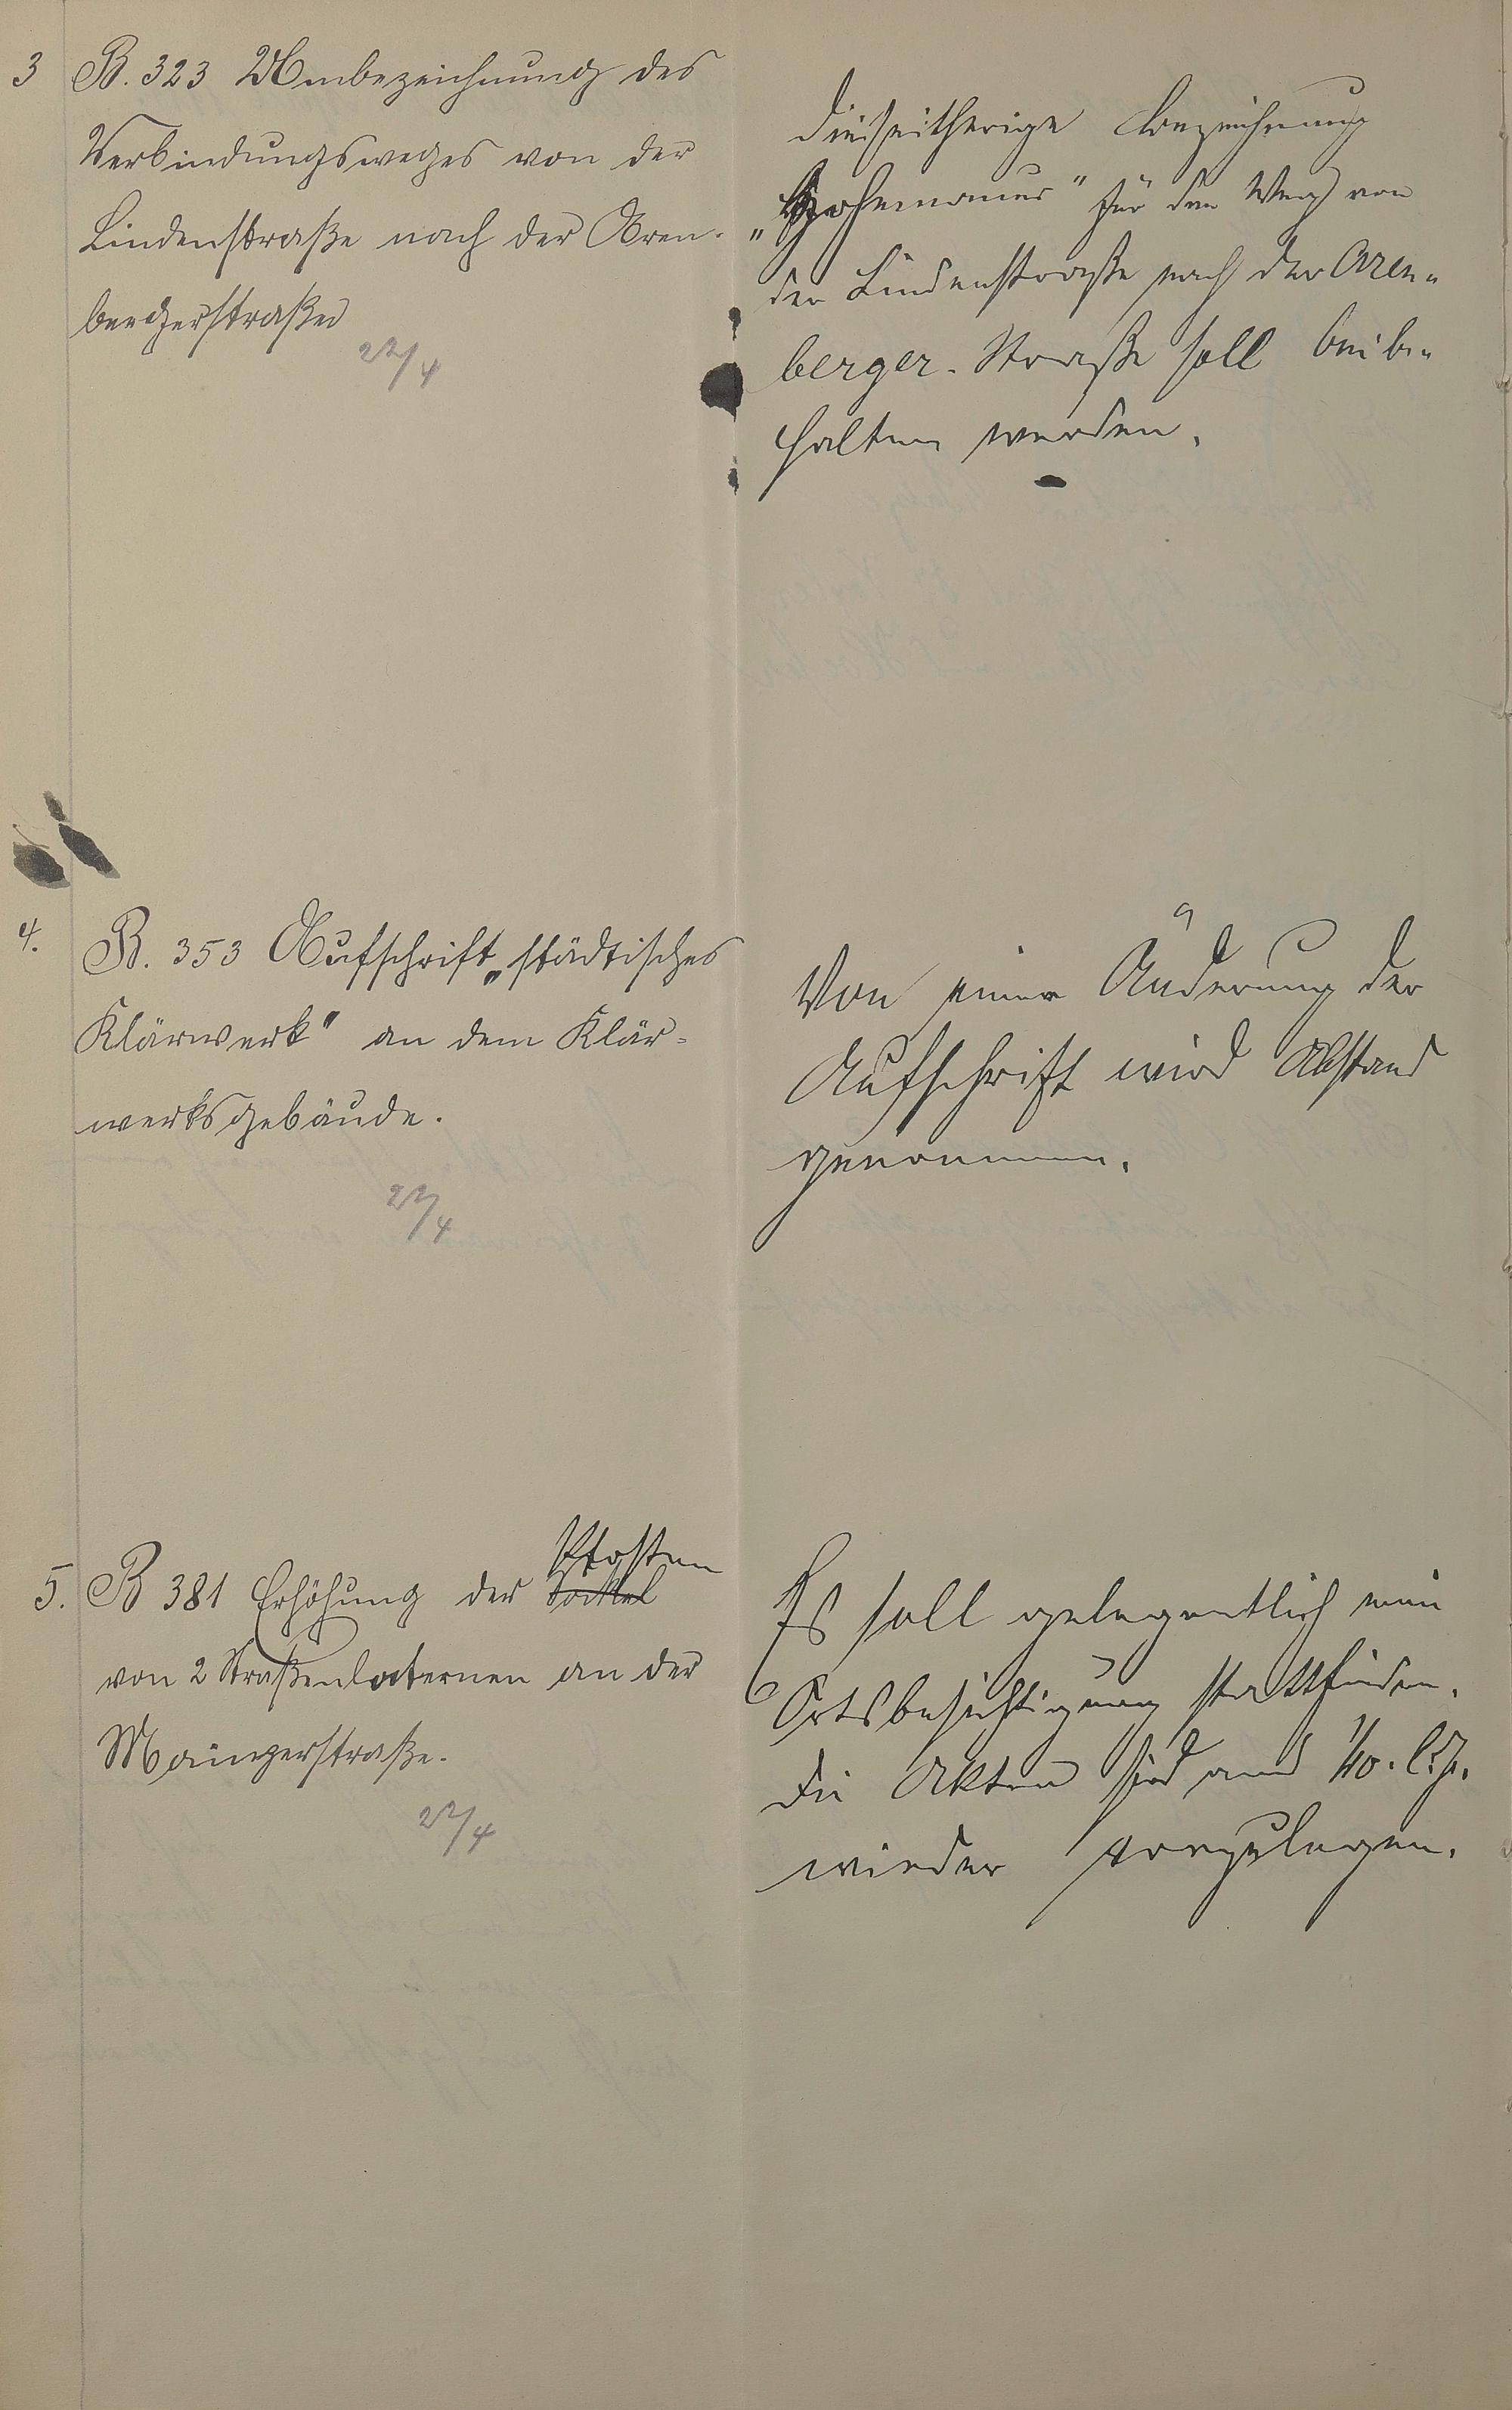 3 B. 323 Umbezeichnung des
Verbindungsweges von der
Lindenstraße nach der Aren-
bergerstraße
22/4
Die seitherige Bezeichnung
„Hohemauer“ für den Weg von
der Lindenstraße nach der Aren-
berger-Straße soll beibe-
halten werden.
4. B. 353 Aufschrift „städtisches
Klärwerk" an dem Klär-
werksgebäude.
22/4
Von einer Änderung der
Aufschrift wird Abstand
genommen.
Pfosten
5. B 381 Erhöhung der Sockel
von 2 Straßenlaternen an der
Mainzerstraße.
22/4
Es soll gelegentlich eine
Ortsbesichtigung stattfinden.
Die Akten sind am 1/10. l. J.
wieder vorzulegen.